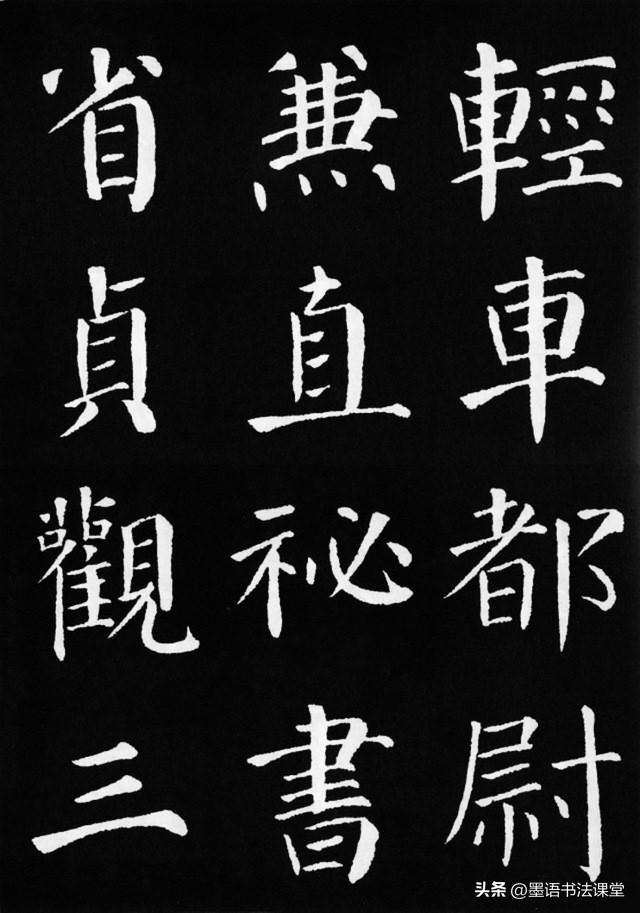 輕車都尉
兼直祕書
省貞觀三
头条 @墨语书法课堂